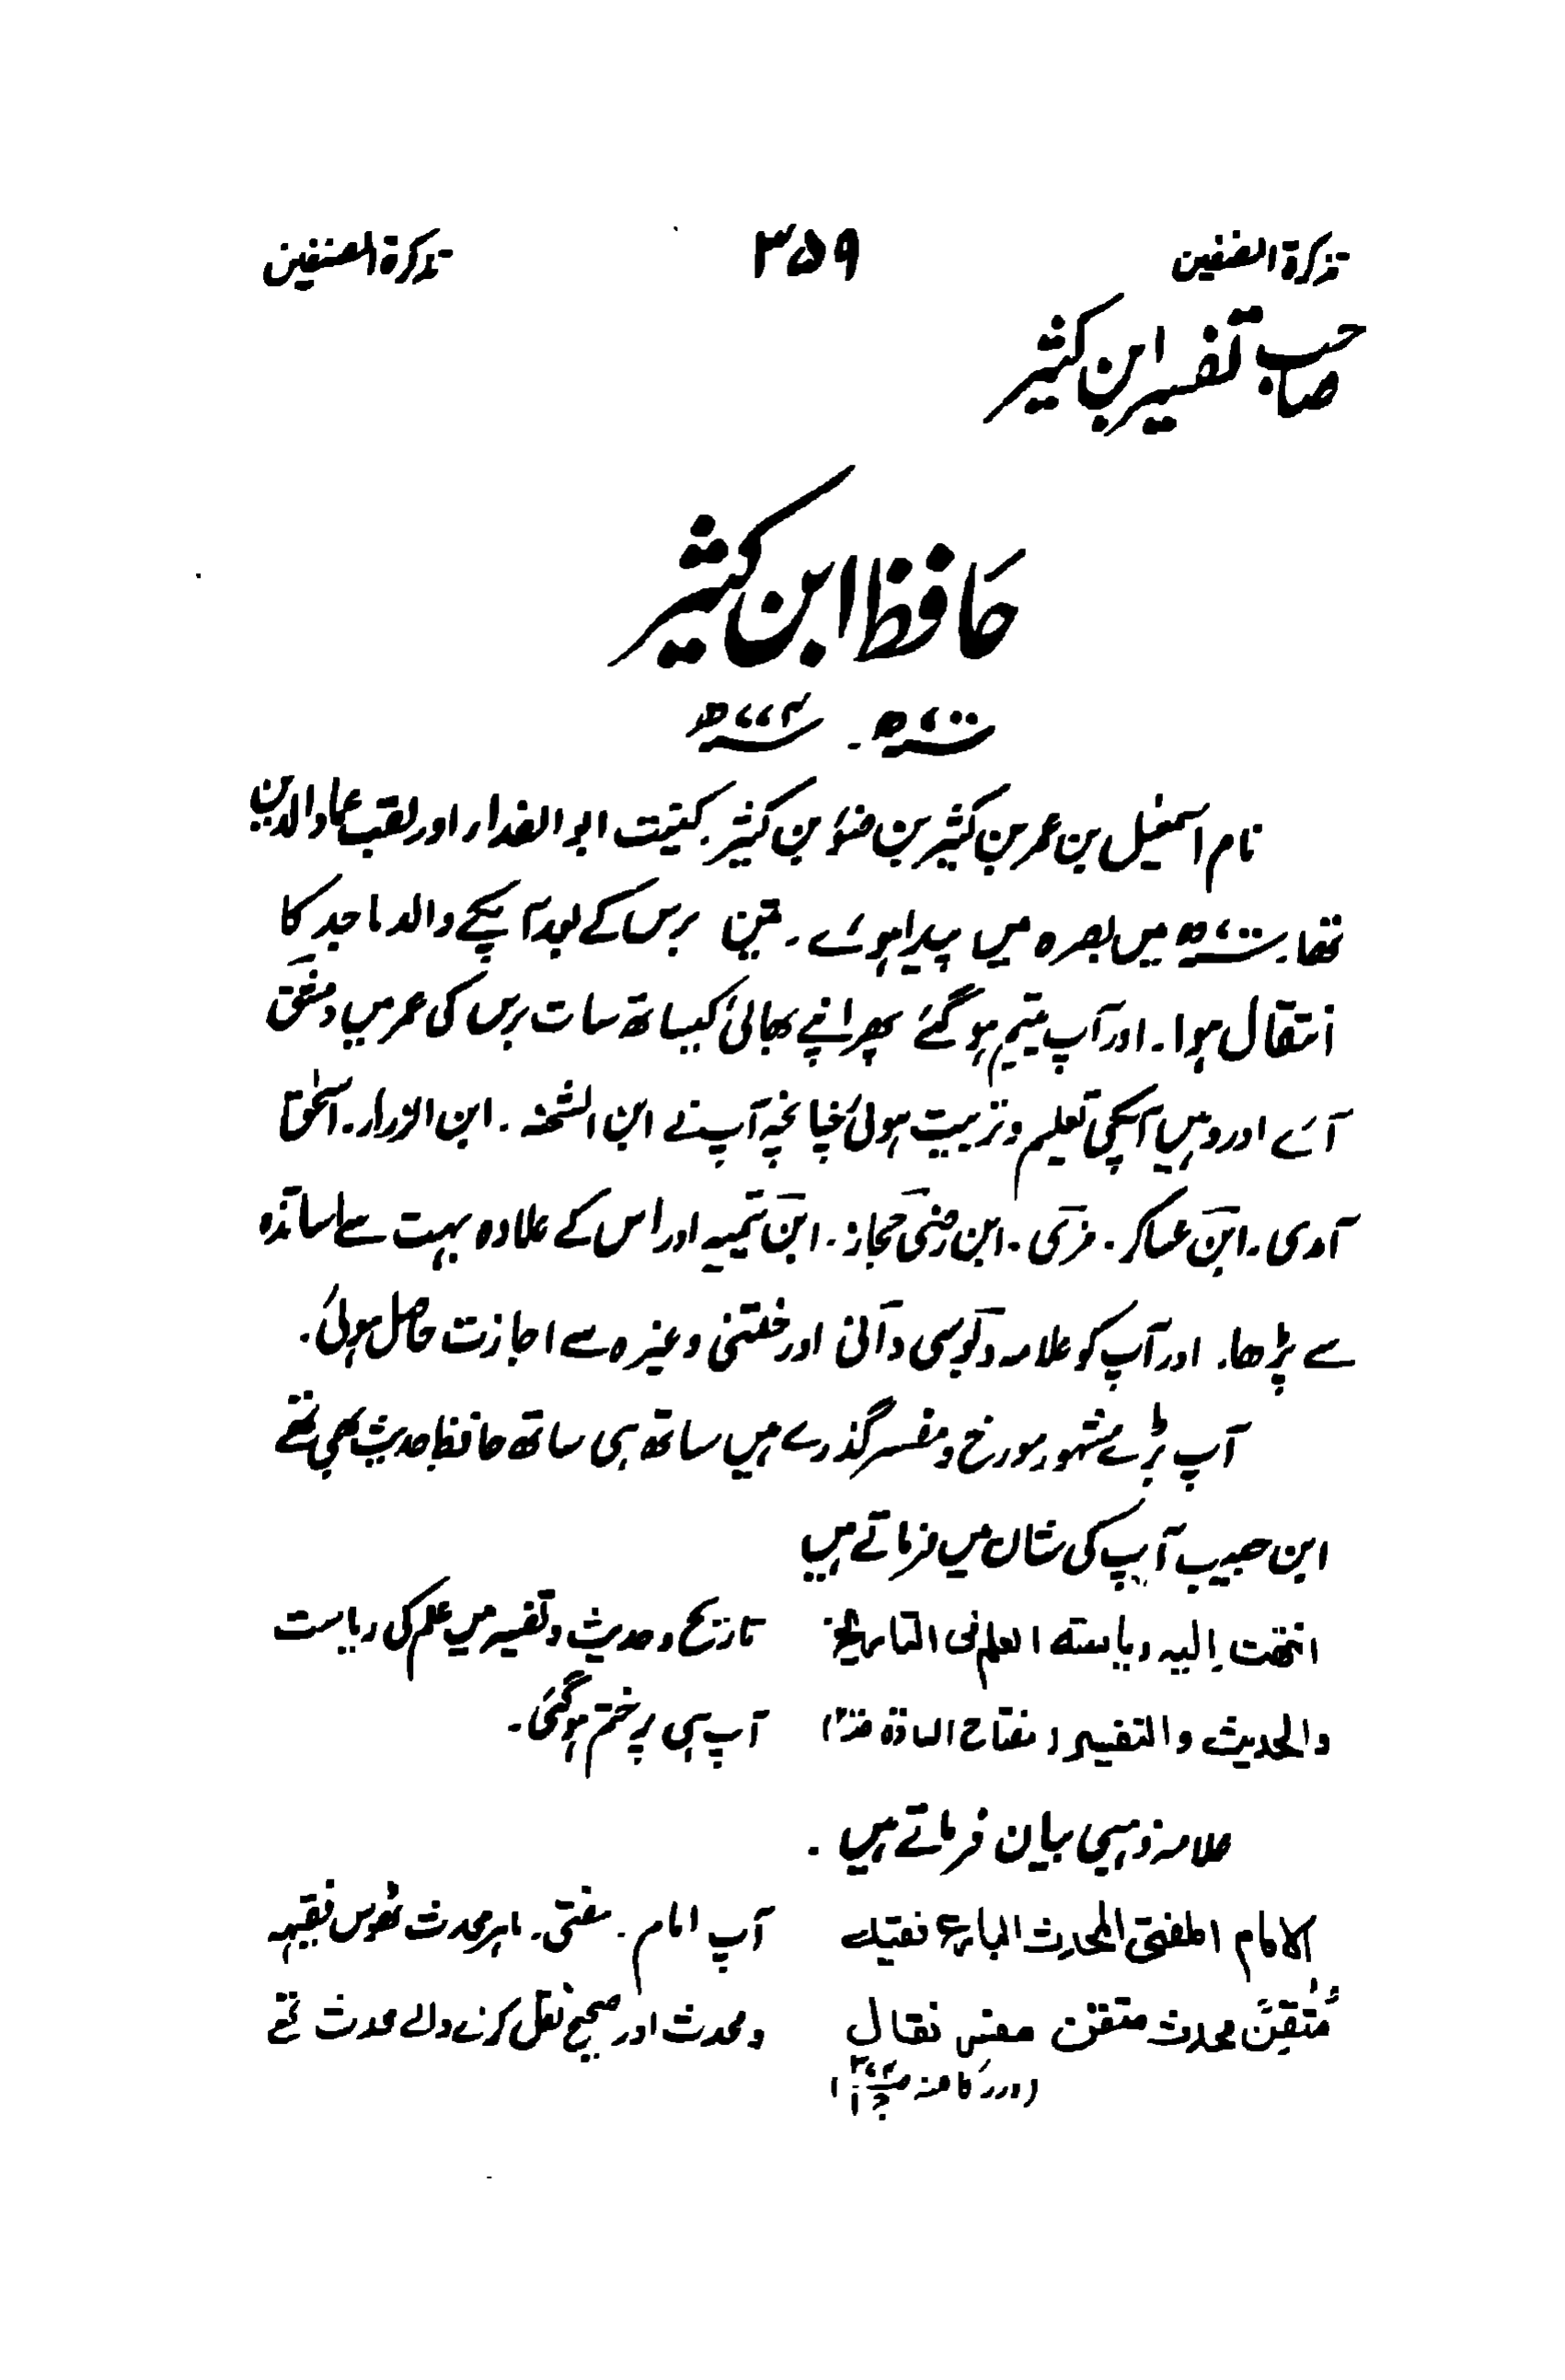 تذکرۃ المصنفین ۳۵۹ تذکرۃ المصنفین
صاحب تفسیر ابن کثیر
حافظ ابن کثیر
۷۰۰ھ - ۷۷۴ھ
نام اسمٰعیل بن عمر بن کثیر بن ضوٗ بن کثیر کنیت ابو الفداء اور لقب عماد الدین
تھا ۷۰۰ھ میں بصرہ میں پیدا ہوئے ۔ تین برس کے بعد آپکے والد ماجد کا
انتقال ہوا ۔ اور آپ یتیم ہو گئے پھر اپنے بھائی کیساتھ سات برس کی عمر میں دمشق
آئے اور وہیں آپکی تعلیم و تربیت ہوئی چنانچہ آپ نے ابن الشحنہ ۔ ابن الزراد ۔ اسحٰق
آمدی ۔ ابن عساکر ۔ مزی ۔ ابن رضی حجاز ۔ ابن تیمیہ اور اس کے علاوہ بہت سے اساتذہ
سے پڑھا ۔ اور آپ کو علامہ دبوسی دآنی اور ختنی وغیرہ سے اجازت حاصل ہوئی ۔
آپ بڑے مشہور مورخ و مفسر گذرے ہیں ساتھ ہی ساتھ حافظ حدیث بھی تھے
ابن حبیب آپ کی شان میں فرماتے ہیں
انتھت إلیہ ریاستہ العلم فی التاریخ تاریخ و حدیث و تفسیر میں علم کی ریاست
والحدیث والتفسیر (مفتاح السادۃ) آپ ہی پر ختم ہوگئی ۔
علامہ ذہبی بیان فرماتے ہیں ۔
الامام المفتی المحدث البارع فقیہ آپ امام ۔ مفتی ۔ ماہر محدث ٹھوس فقیہہ
مُتقِنٌ محدث متقن مفسر نقال و محدث اور صحیح نقل کرنے والے محدث تھے
(درر کامنہ)